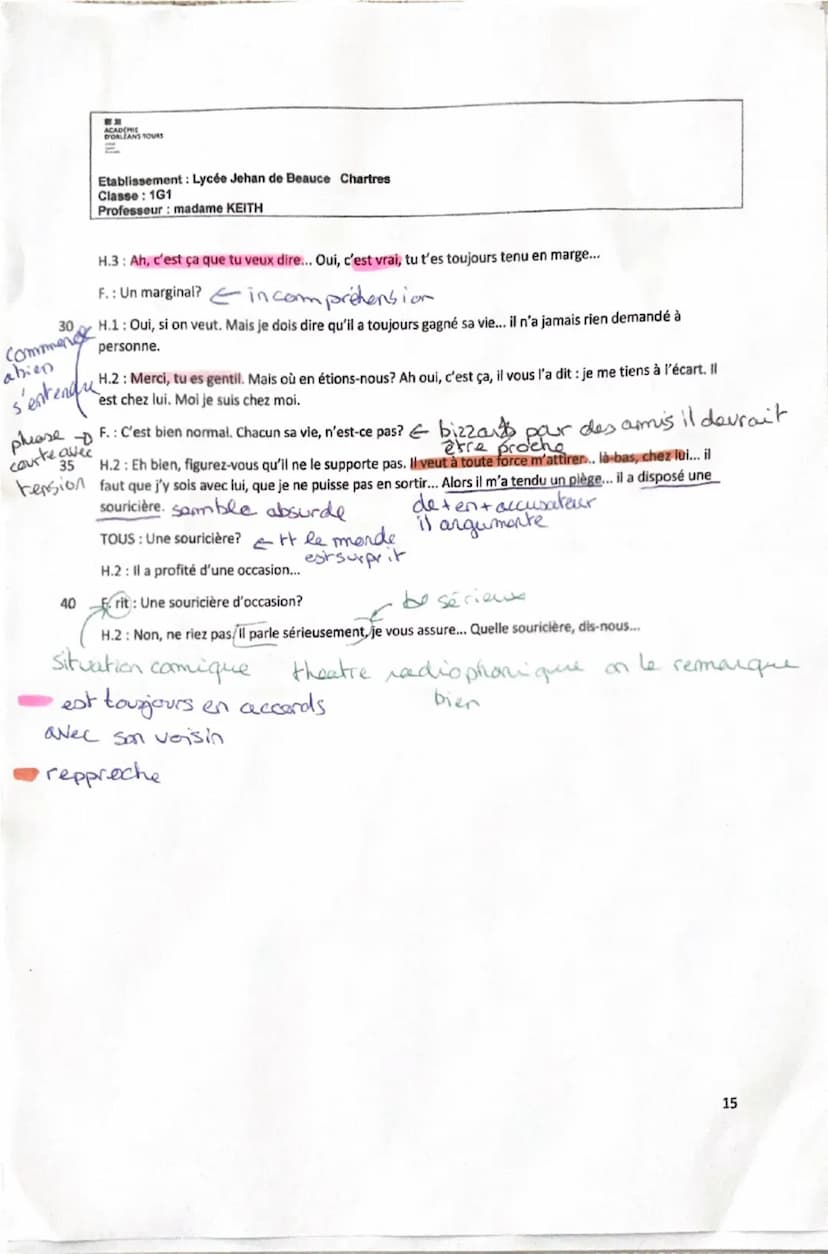 ACADÉMIE
D'ORLÉANS TOURS
Etablissement : Lycée Jehan de Beauce Chartres
Classe : 1G1
Professeur : madame KEITH
H.3 : Ah, c'est ça que tu veux dire... Oui, c'est vrai, tu t'es toujours tenu en marge...
F. : Un marginal? ← incompréhension
30 H.1 : Oui, si on veut. Mais je dois dire qu'il a toujours gagné sa vie... il n'a jamais rien demandé à
personne.
commence
a bien
s'entendu
H.2 : Merci, tu es gentil. Mais où en étions-nous? Ah oui, c'est ça, il vous l'a dit : je me tiens à l'écart. Il
est chez lui. Moi je suis chez moi.
F. : C'est bien normal. Chacun sa vie, n'est-ce pas? ← bizzard par des amis il devrait
être proche
phrase →
courte avec
tension
35 H.2 : Eh bien, figurez-vous qu'il ne le supporte pas. Il veut à toute force m'attirer... là-bas, chez lui... il
faut que j'y sois avec lui, que je ne puisse pas en sortir... Alors il m'a tendu un piège... il a disposé une
souricière. samble absurde
de + en + accusateur
il argumente
TOUS : Une souricière? ← tt le monde
est surprit
H.2 : Il a profité d'une occasion...
40 F. rit : Une souricière d'occasion?
sérieux
H.2 : Non, ne riez pas. Il parle sérieusement, je vous assure... Quelle souricière, dis-nous...
Situation comique
theatre radiophonique on le remarque
bien
est tougjours en accords
avec son voisin
repproche
15